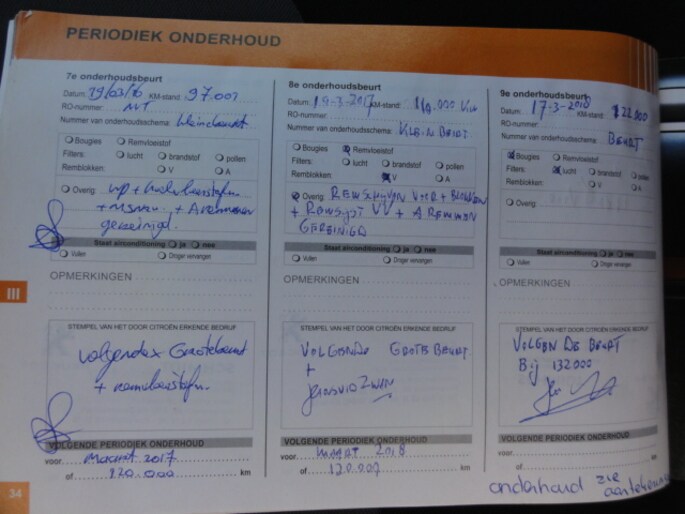 PERIODIEK ONDERHOUD
7e onderhoudsbeurt
Datum: 29/03/16 KM-stand: 97.001
RO-nummer: NVT
Nummer van onderhoudsschema: kleinebeurt
Bougies Remvloeistof
Filters: lucht brandstof pollen
Remblokken: V A
Overig:
+ A remmen
gereinigd.
Staat airconditioning ja nee
Vullen Droger vervangen
OPMERKINGEN
STEMPEL VAN HET DOOR CITROËN ERKENDE BEDRIJF
volgende Grotebeurt
+ remvloeistof
VOLGENDE PERIODIEK ONDERHOUD
voor maart 2017
of 120.000 km
8e onderhoudsbeurt
Datum: 19-3-2017 KM-stand: 110.000 KM
RO-nummer:
Nummer van onderhoudsschema: KLEIN BEURT
Bougies Remvloeistof
Filters: lucht brandstof pollen
Remblokken: V A
Overig: REMSCHIJVEN VOOR + BLOKKEN
+ VV + A REMMEN
GEREINIGD
Staat airconditioning ja nee
Vullen Droger vervangen
OPMERKINGEN
STEMPEL VAN HET DOOR CITROËN ERKENDE BEDRIJF
VOLGENDE GROTE BEURT
+
VOLGENDE PERIODIEK ONDERHOUD
voor MAART 2018
of 120.000 km
9e onderhoudsbeurt
Datum: 17-3-2018 KM-stand: 122.000
RO-nummer:
Nummer van onderhoudsschema: BEURT
Bougies Remvloeistof
Filters: lucht brandstof pollen
Remblokken: V A
Overig:
Staat airconditioning ja nee
Vullen Droger vervangen
OPMERKINGEN
STEMPEL VAN HET DOOR CITROËN ERKENDE BEDRIJF
VOLGENDE BEURT
Bij 132000
VOLGENDE PERIODIEK ONDERHOUD
voor
of km
onderhoud zie
III
34